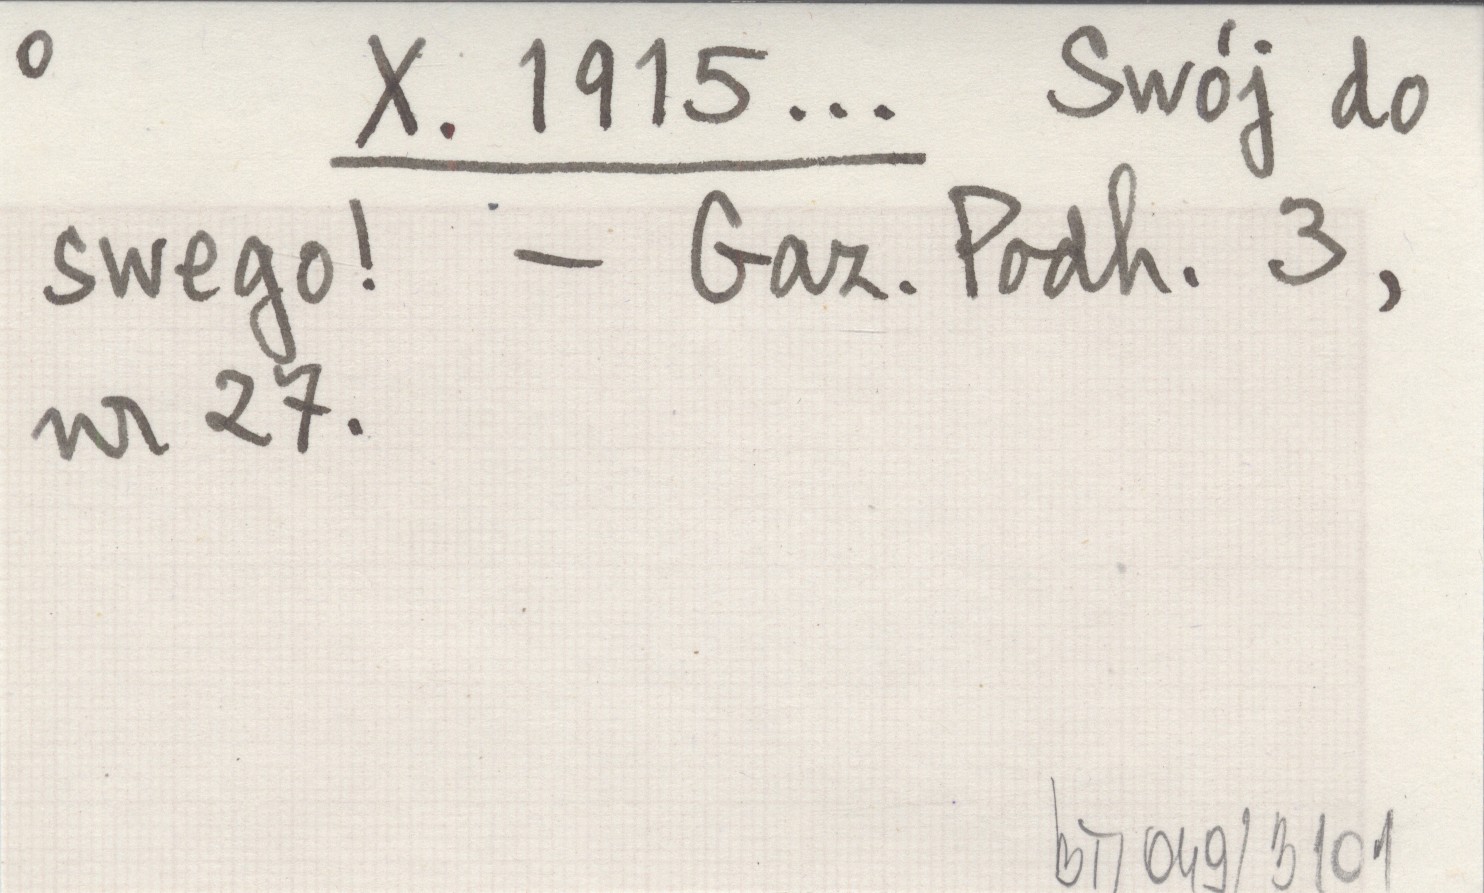 o X. 1915... Swój do
swego! – Gaz. Podh. 3,
nr 27.
BT/049/3101